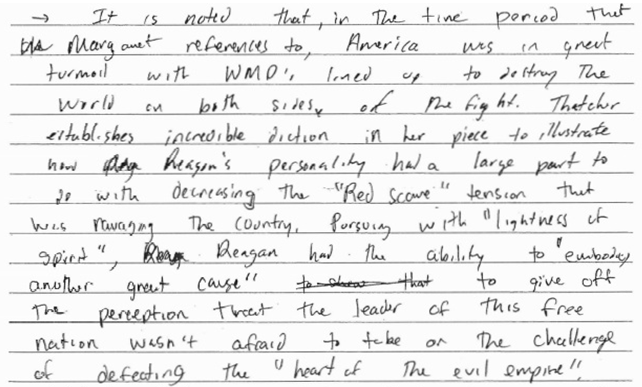 → It is noted that, in the time period that
Margaret references to, America was in great
turmoil with WMD's lined up to destroy The
World on both sides, of the fight. Thatcher
establishes incredible diction in her piece to illustrate
how Reagan's personality had a large part to
do with decreasing the "Red scare" tension that
was ravaging The country. Pursuing with "lightness of
spirit", Reagan had the ability to "embody
another great cause" to show that to give off
The perception threat the leader of this free
nation wasn't afraid to take on The challenge
of defeating the "heart of The evil empire".